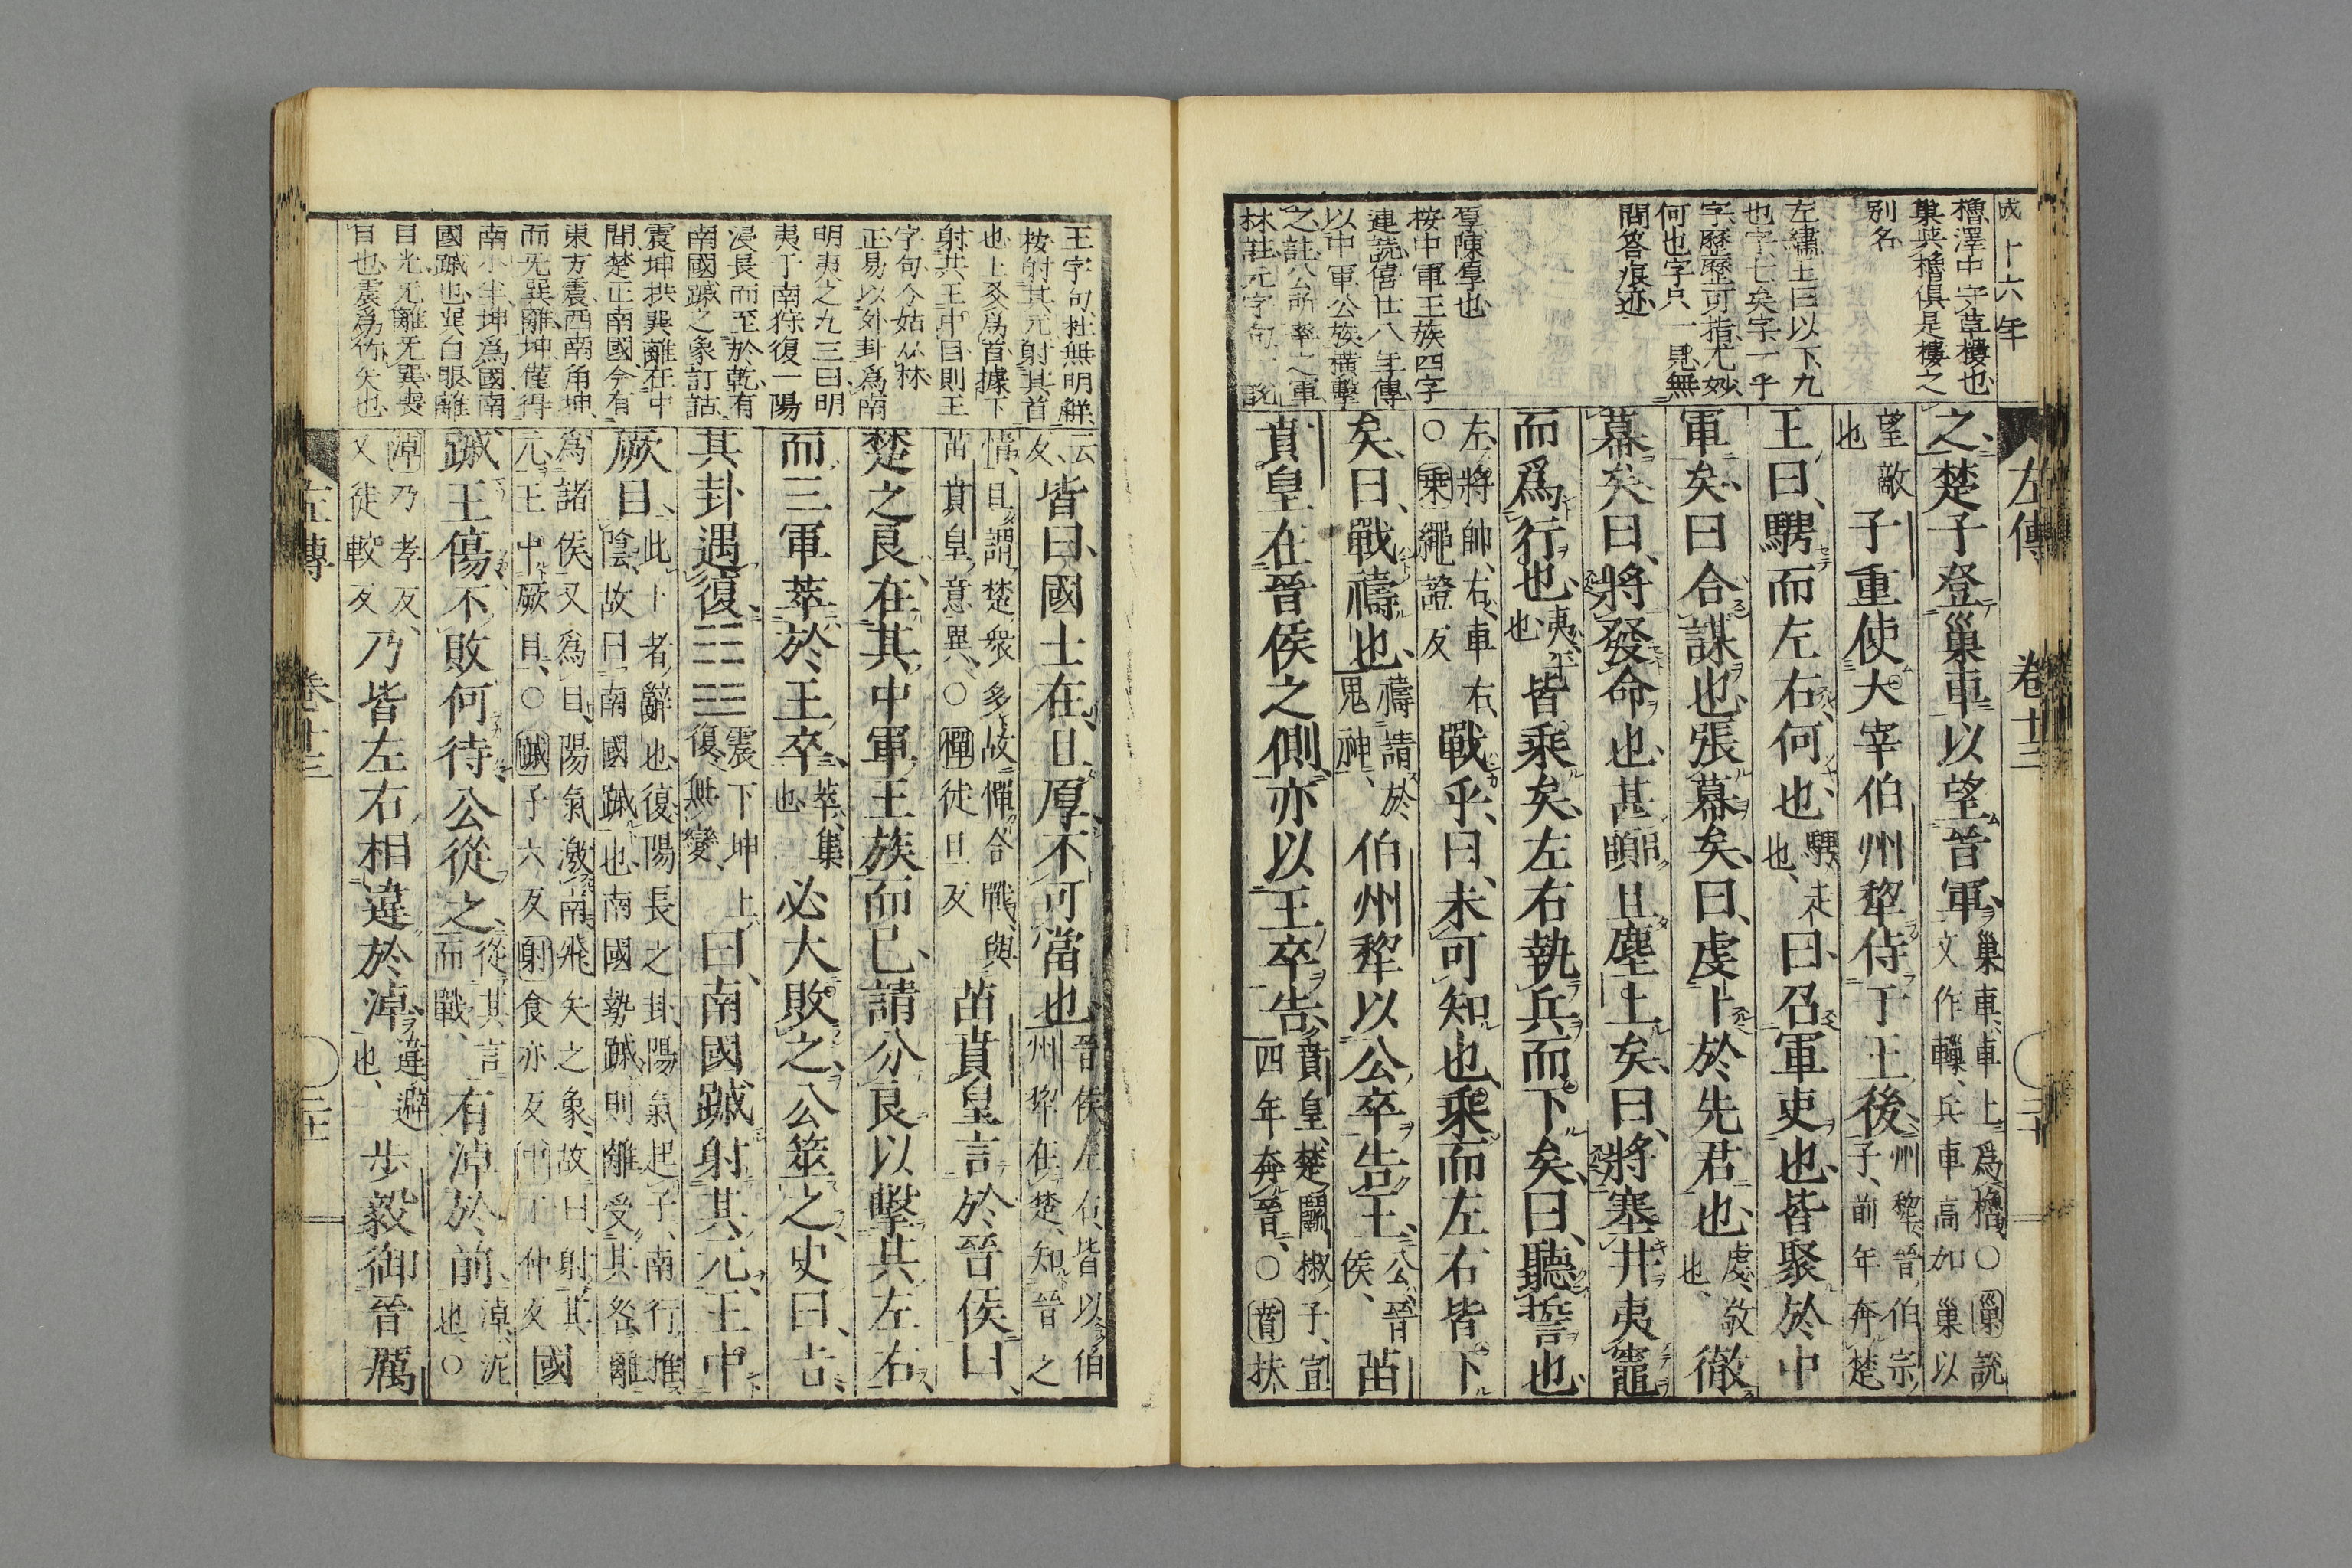 成十六年
櫓澤中守草樓也
巢與櫓俱是樓之
別名
左繡上曰以下九
也字七矣字一乎
字歷歷可指尤妙
何也字只一見無
問答痕迹
厚陳厚也
按中軍王族四字
連説僖廿八年傳
以中軍公族橫擊
之註公所率之軍
林註元字句一説
左傳 卷十三 〇三十
之楚子登巢車以望晉軍巢車車上爲櫓〇巢説
文作轈兵車高如巢以
望敵
也子重使大宰伯州犂侍于王後州犂晉伯宗
子前年奔楚
王曰騁而左右何也騁走
也曰召軍吏也皆聚於中
軍矣曰合謀也張幕矣曰虔卜於先君也虔敬
也徹
幕矣曰將發命也甚囂且塵上矣曰將塞井夷竈
而爲行也夷平
也皆乘矣左右執兵而下矣曰聽誓也
左將帥右車右
〇乘繩證反戰乎曰未可知也乘而左右皆下
矣曰戰禱也禱請於
鬼神伯州犂以公卒告王公晉
侯苗
賁皇在晉侯之側亦以王卒告賁皇楚鬬椒子宣
四年奔晉〇賁扶
王字句杜無明解
按射其元射其首
也上爻爲首據下
射共王中目則王
字句今姑从林
正易以外卦爲南
明夷之九三曰明
夷于南狩復一陽
浸長而至於乾有
南國䠞之象訂詁
震坤拱巽離在中
間楚正南國今有
東方震西南角坤
而无巽離坤僅得
南小半坤爲國南
國䠞也巽白眼離
目先无離无巽喪
目也震爲竹矢也
云
反皆曰國士在且厚不可當也晉侯左右皆以伯
州犂在楚知晉之
情且謂楚衆多故憚合戰與
苗賁皇意異〇憚徒旦反苗賁皇言於晉侯曰
楚之良在其中軍王族而已請分良以擊其左右
而三軍萃於王卒萃集
也必大敗之公筮之史曰吉
其卦遇復䷗震下坤上
復無變曰南國䠞射其元王中
厥目此卜者辭也復陽長之卦陽氣起子南行推
陰故曰南國䠞也南國勢䠞則離受其咎離
爲諸侯又爲目陽氣激南飛矢之象故曰射其
元王中厥目〇䠞子六反射食亦反中丁仲反國
䠞王傷不敗何待公從之從其言
而戰有淖於前淖泥
也〇
淖乃孝反
又徒較反乃皆左右相違於淖違避
也步毅御晉厲
左傳 卷十三 〇三十一